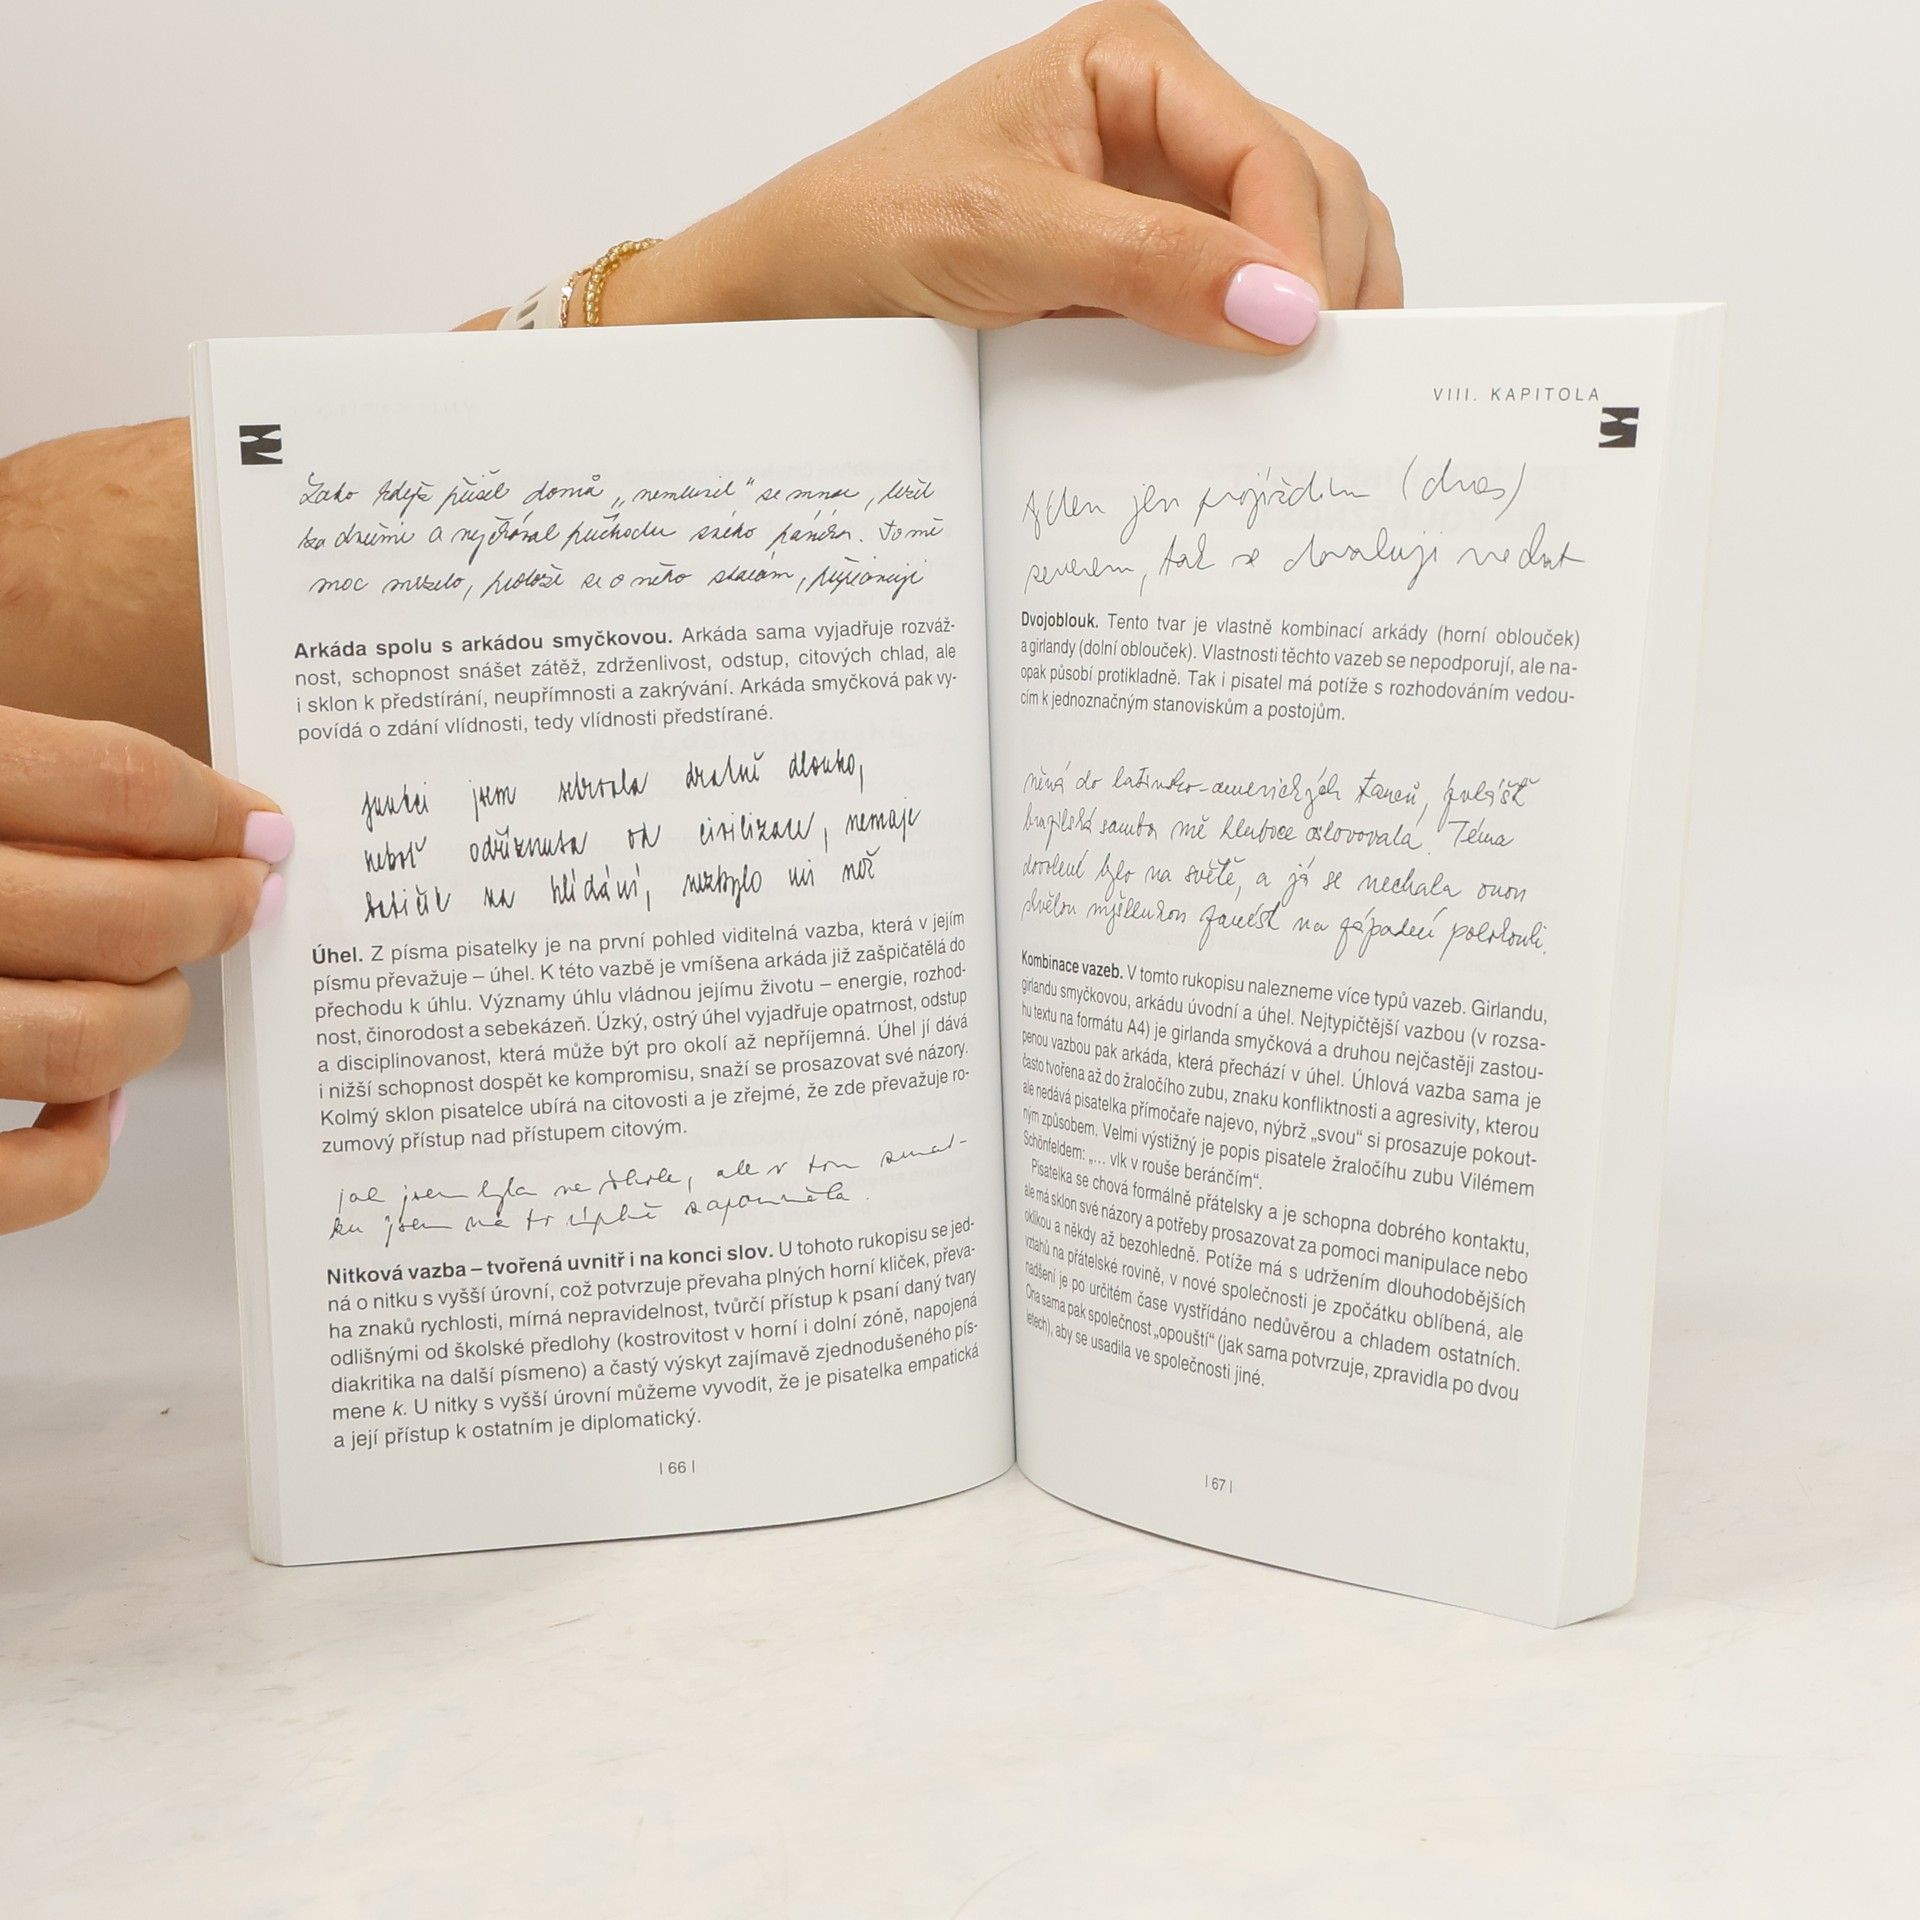 domů „nemluvil“ se mnou, ležel
a
moc mrzelo, protože se o něho starám,
Arkáda spolu s arkádou smyčkovou. Arkáda sama vyjadřuje rozváž-
nost, schopnost snášet zátěž, zdrženlivost, odstup, citových chlad, ale
i sklon k předstírání, neupřímnosti a zakrývání. Arkáda smyčková pak vy-
povídá o zdání vlídnosti, tedy vlídnosti předstírané.
funkci jsem setrvala dlouho,
neboť odříznuta od civilizace, nemaje
babiček na hlídání, nezbylo mi než
Úhel. Z písma pisatelky je na první pohled viditelná vazba, která v jejím
písmu převažuje – úhel. K této vazbě je vmíšena arkáda již zašpičatělá do
přechodu k úhlu. Významy úhlu vládnou jejímu životu – energie, rozhod-
nost, činorodost a sebekázeň. Úzký, ostrý úhel vyjadřuje opatrnost, odstup
a disciplinovanost, která může být pro okolí až nepříjemná. Úhel jí dává
i nižší schopnost dospět ke kompromisu, snaží se prosazovat své názory.
Kolmý sklon pisatelce ubírá na citovosti a je zřejmé, že zde převažuje ro-
zumový přístup nad přístupem citovým.
jak jsem byla ve škole, ale v tom zmat-
ku jsem na to úplně zapomněla.
Nitková vazba – tvořená uvnitř i na konci slov. U tohoto rukopisu se jed-
ná o nitku s vyšší úrovní, což potvrzuje převaha plných horní kliček, převa-
ha znaků rychlosti, mírná nepravidelnost, tvůrčí přístup k psaní daný tvary
odlišnými od školské předlohy (kostrovitost v horní i dolní zóně, napojená
diakritika na další písmeno) a častý výskyt zajímavě zjednodušeného pís-
mene k. U nitky s vyšší úrovní můžeme vyvodit, že je pisatelka empatická
a její přístup k ostatním je diplomatický.
| 66 |
VIII. KAPITOLA
jen projíždím (dnes)
severem, tak se
Dvojoblouk. Tento tvar je vlastně kombinací arkády (horní oblouček)
a girlandy (dolní oblouček). Vlastnosti těchto vazeb se nepodporují, ale na-
opak působí protikladně. Tak i pisatel má potíže s rozhodováním vedou-
cím k jednoznačným stanoviskům a postojům.
do latinsko-amerických tanců, zvláště
brazilská samba mě hluboce oslovovala. Téma
dovolené bylo na světě, a já se nechala onou
skvělou myšlenkou zanést na západní polokouli.
Kombinace vazeb. V tomto rukopisu nalezneme více typů vazeb. Girlandu,
girlandu smyčkovou, arkádu úvodní a úhel. Nejtypičtější vazbou (v rozsa-
hu textu na formátu A4) je girlanda smyčková a druhou nejčastěji zastou-
penou vazbou pak arkáda, která přechází v úhel. Úhlová vazba sama je
často tvořena až do žraločího zubu, znaku konfliktnosti a agresivity, kterou
ale nedává pisatelka přímočaře najevo, nýbrž „svou“ si prosazuje pokout-
ným způsobem. Velmi výstižný je popis pisatele žraločího zubu Vilémem
Schönfeldem: „... vlk v rouše beránčím“.
Pisatelka se chová formálně přátelsky a je schopna dobrého kontaktu,
ale má sklon své názory a potřeby prosazovat za pomoci manipulace nebo
oklikou a někdy až bezohledně. Potíže má s udržením dlouhodobějších
vztahů na přátelské rovině, v nové společnosti je zpočátku oblíbená, ale
nadšení je po určitém čase vystřídáno nedůvěrou a chladem ostatních.
Ona sama pak společnost „opouští“ (jak sama potvrzuje, zpravidla po dvou
letech), aby se usadila ve společnosti jiné.
| 67 |